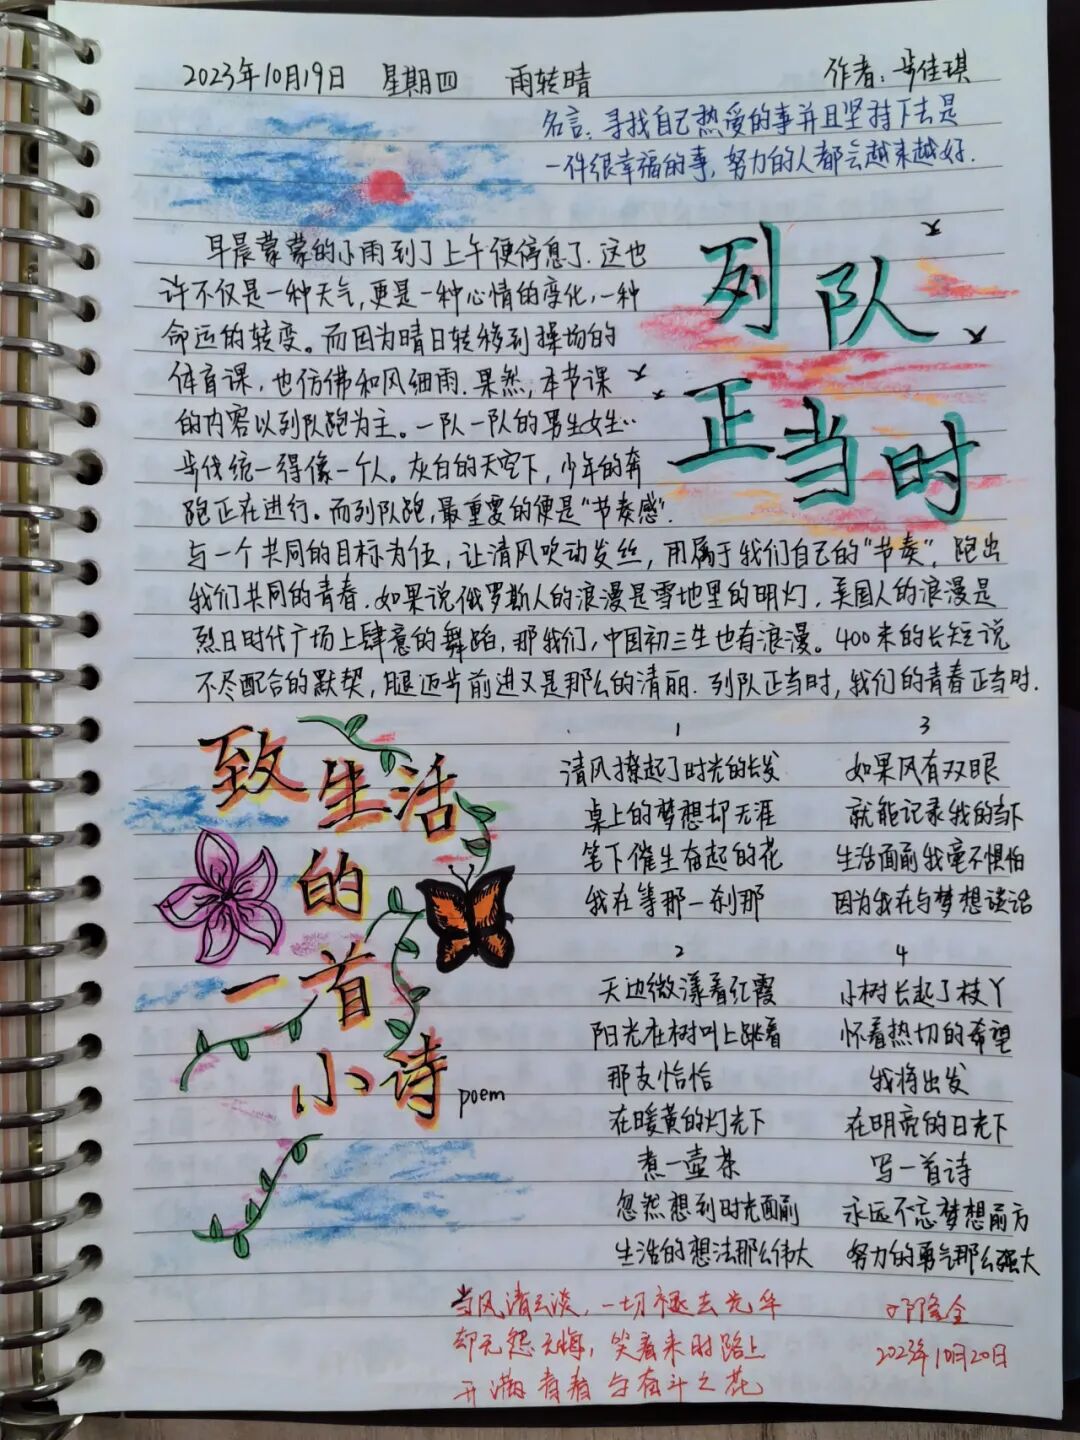 2023年10月19日 星期四 雨转晴 作者:步佳琪
名言:寻找自己热爱的事并且坚持下去是
一件很幸福的事,努力的人都会越来越好.
列队
正当时
早晨蒙蒙的小雨到了上午便停息了.这也
许不仅是一种天气,更是一种心情的变化,一种
命运的转变。而因为晴日转移到操场的
体育课,也仿佛和风细雨.果然,本节课
的内容以列队跑为主。一队一队的男生女生..
步伐统一得像一个人。灰白的天空下,少年的奔
跑正在进行。而列队跑,最重要的便是“节奏感”.
与一个共同的目标为伍,让清风吹动发丝,用属于我们自己的“节奏”,跑出
我们共同的青春.如果说俄罗斯人的浪漫是雪地里的明灯,美国人的浪漫是
烈日时代广场上肆意的舞蹈,那我们,中国初三生也有浪漫。400米的长短说
不尽配合的默契,腿迈步前进又是那么的清丽.列队正当时,我们的青春正当时.
致生活
的
一首
小诗 poem
1
清风撩起了时光的长发
桌上的梦想却无涯
笔下催生奋起的花
我在等那一刹那
2
天边微漾着红霞
阳光在树叶上跳着
那支恰恰
在暖黄的灯光下
煮一壶茶
忽然想到时光面前
生活的想法那么伟大
3
如果风有双眼
就能记录我的当下
生活面前我毫不惧怕
因为我在与梦想谈话
4
小树长起了枝丫
怀着热切的希望
我将出发
在明亮的日光下
写一首诗
永远不忘梦想前方
努力的勇气那么强大
当风清云淡,一切褪去光华
却无怨无悔,笑看来时路上
开满青春与奋斗之花
2023年10月20日